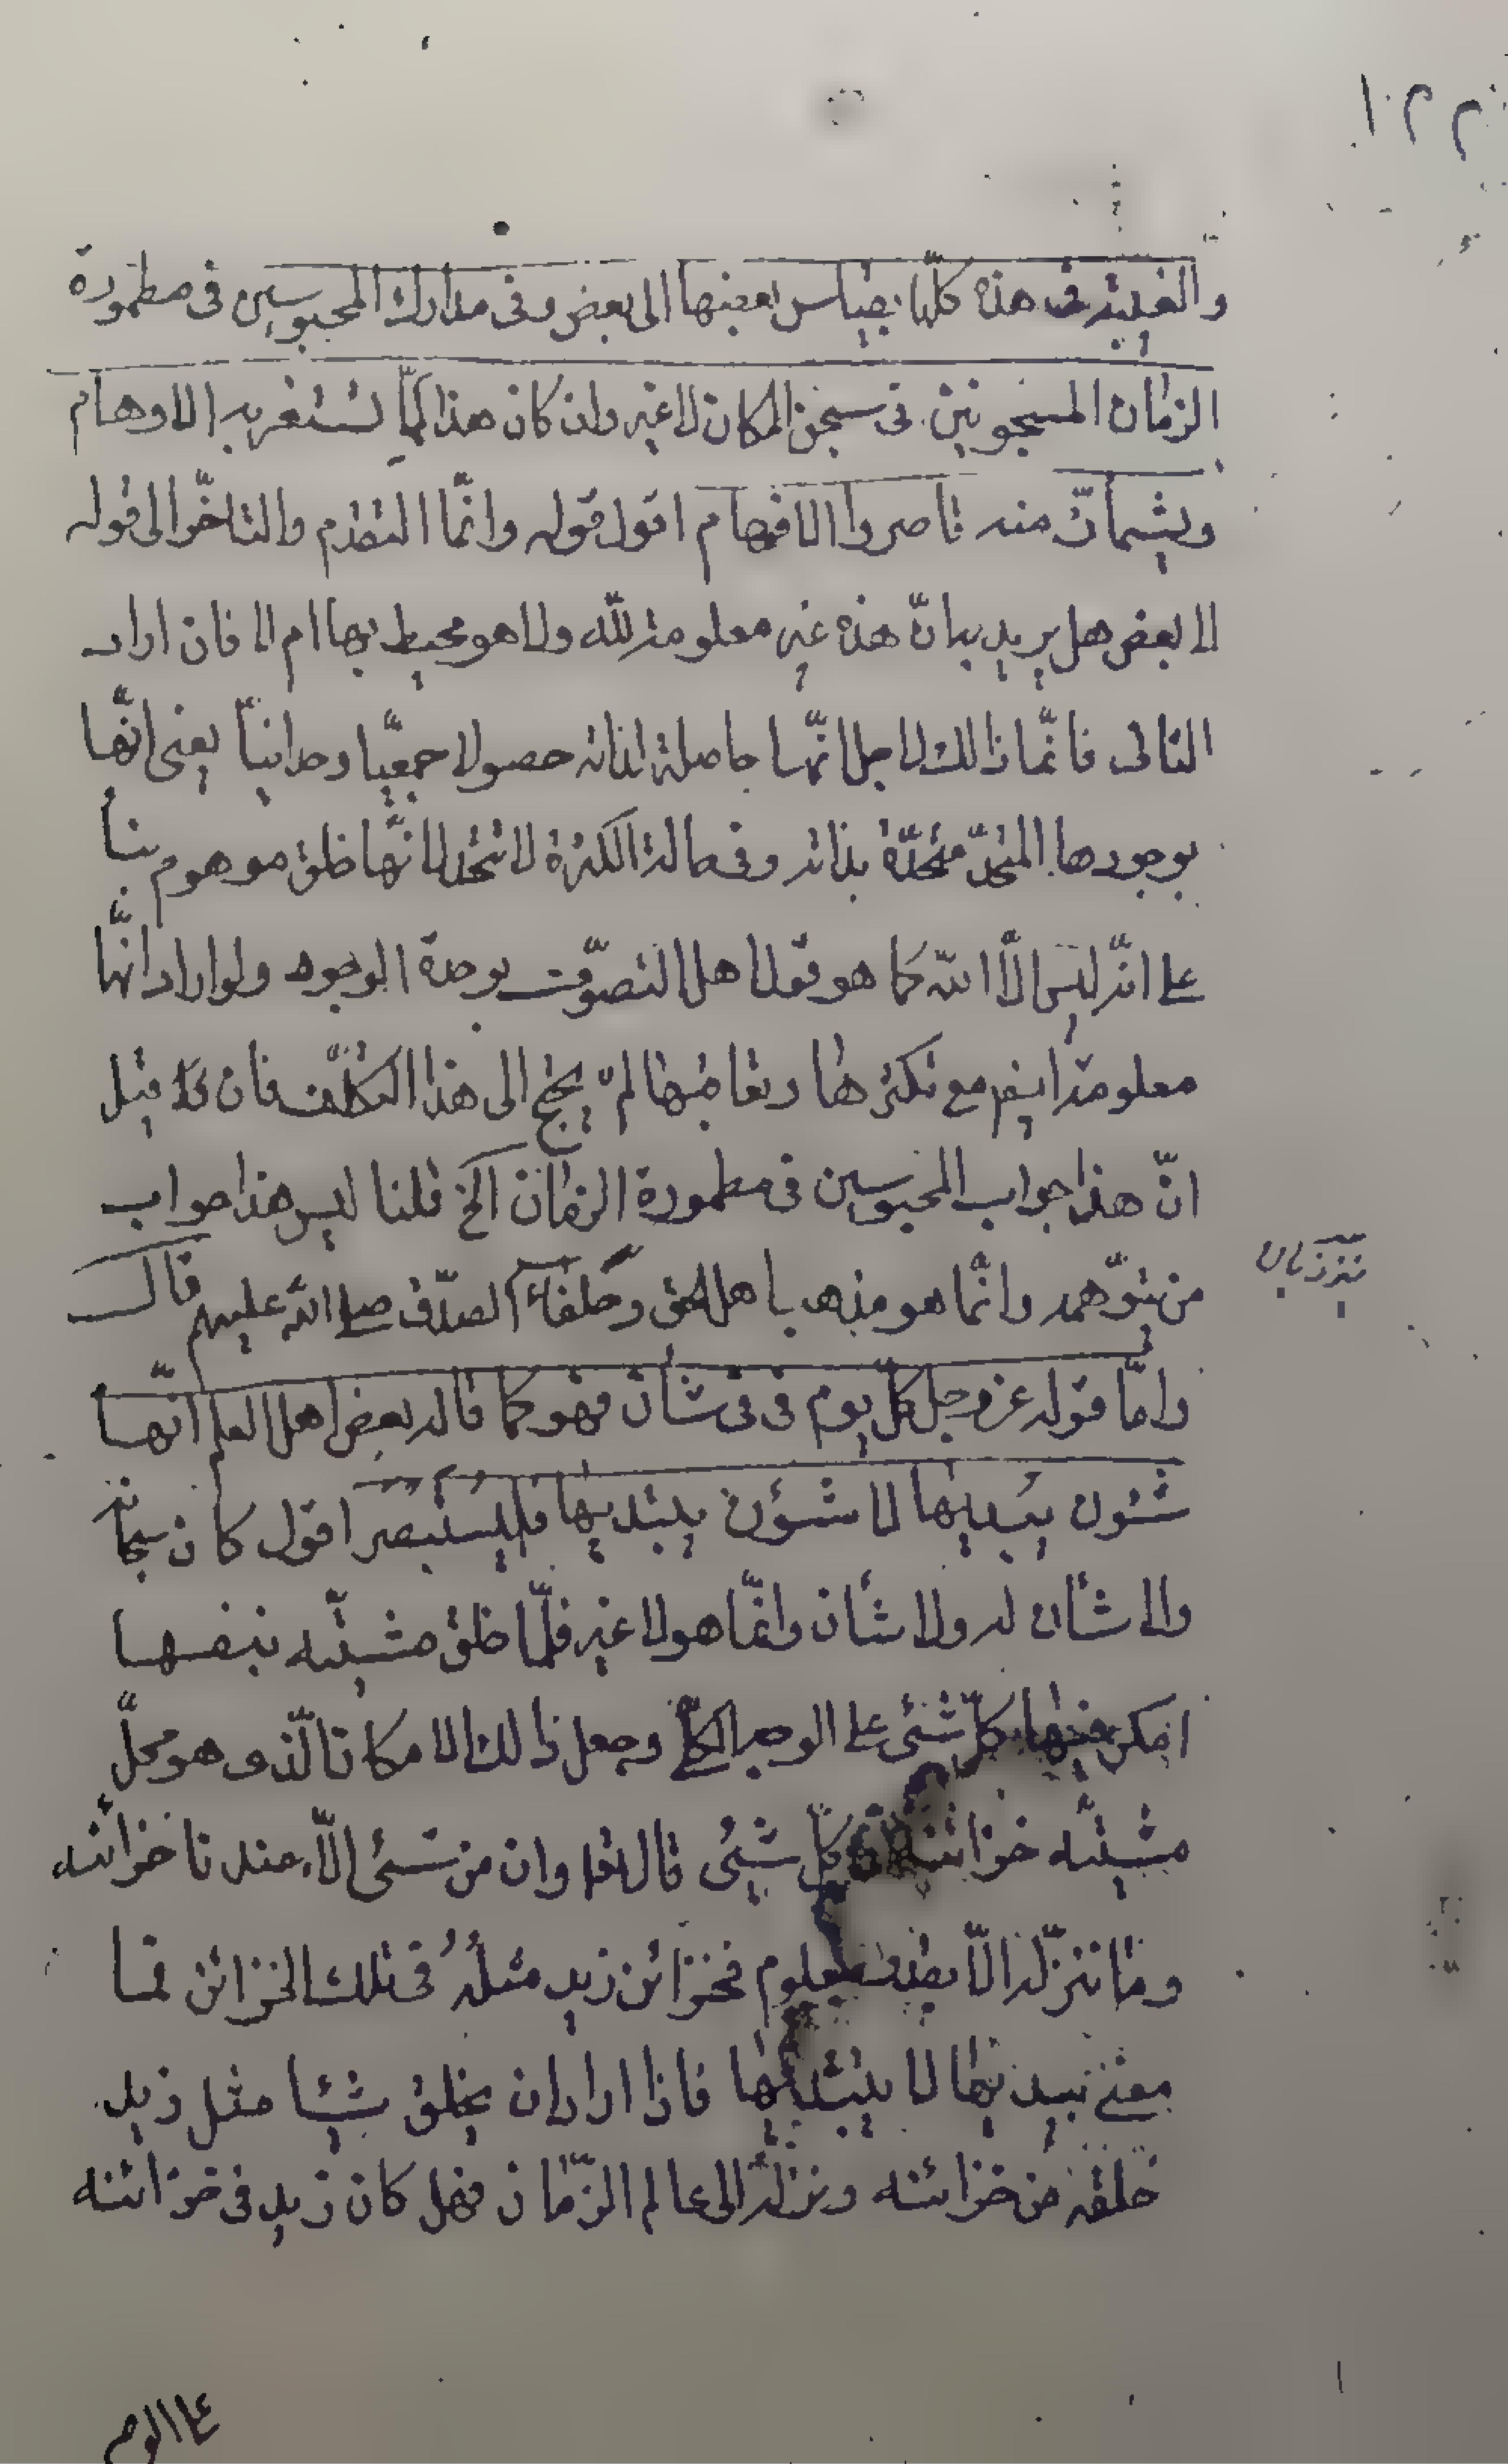 ١٢٢
والغيبة فى هذه كلّها بقياس بعضها الى بعض وفى مدارك المحبوسين فى مطمورة
الزمان المسجونين فى سجن المكان لا غير وان كان هذا ممّا تستغربه الاوهام
ويشمأزّ منه قاصروا الافهام اقول قوله وانّما التقدّم والتاخّر الى قوله
لا بعض هل يريد بها انّ هذه غير معلومة لله ولا هو محيط بها ام لا فان اراد
الثانى فانّما ذالك لاجل انّها حاصلة لذاته حصولا جمعيّا وحدانيّا يعنى انّها
بوجودها المتحدّ متّحدّة بذاته وفى حالة الكثرة لا تتّحد لانّها خلق موهوم بناً
على انّه ليس الّا الله كما هو قول اهل التصوّف بوحدة الوجود ولو اراد انّها
معلومة ايضم مع تكثرها وتعاقبها لم يحتج الى هذا التكلّف فان قيل
انّ هذا جواب المحبوسين فى مطمورة الزمان الخ قلنا ليس هذا جواب
من توّهمه وانّما هو مذهب اهل الحق وخلفاء الصدّق صلى الله عليهم قال
وامّا قوله عزوجل كلّ يوم فى فى شأن فهو كما قاله بعض اهل العلم انّها
شئون يبديها لا شئون يبتديها فليستبصر اقول كان سبحانه
ولا شأن له ولا شأن وانّما هو لا غير فلمّا خلق مشيّته بنفسها
امكن منها كلّ شئى على الوجه الكلّى وجعل ذالك الامكان الّذى هو محلّ
مشيّته خزائنه كلّ شيئى قال تعا وان من شئى الّا عندنا خزائنه
وما ننزّله الّا بقدر معلوم فخزائن زيد مثله فى تلك الخزائن فما
معنى يبديها لا يبتديها فاذا اراد ان يخلق شيئا مثل زيد
خلقه من خزائنه ونزله الى عالم الزّمان فهل كان زيد فى خزائنه